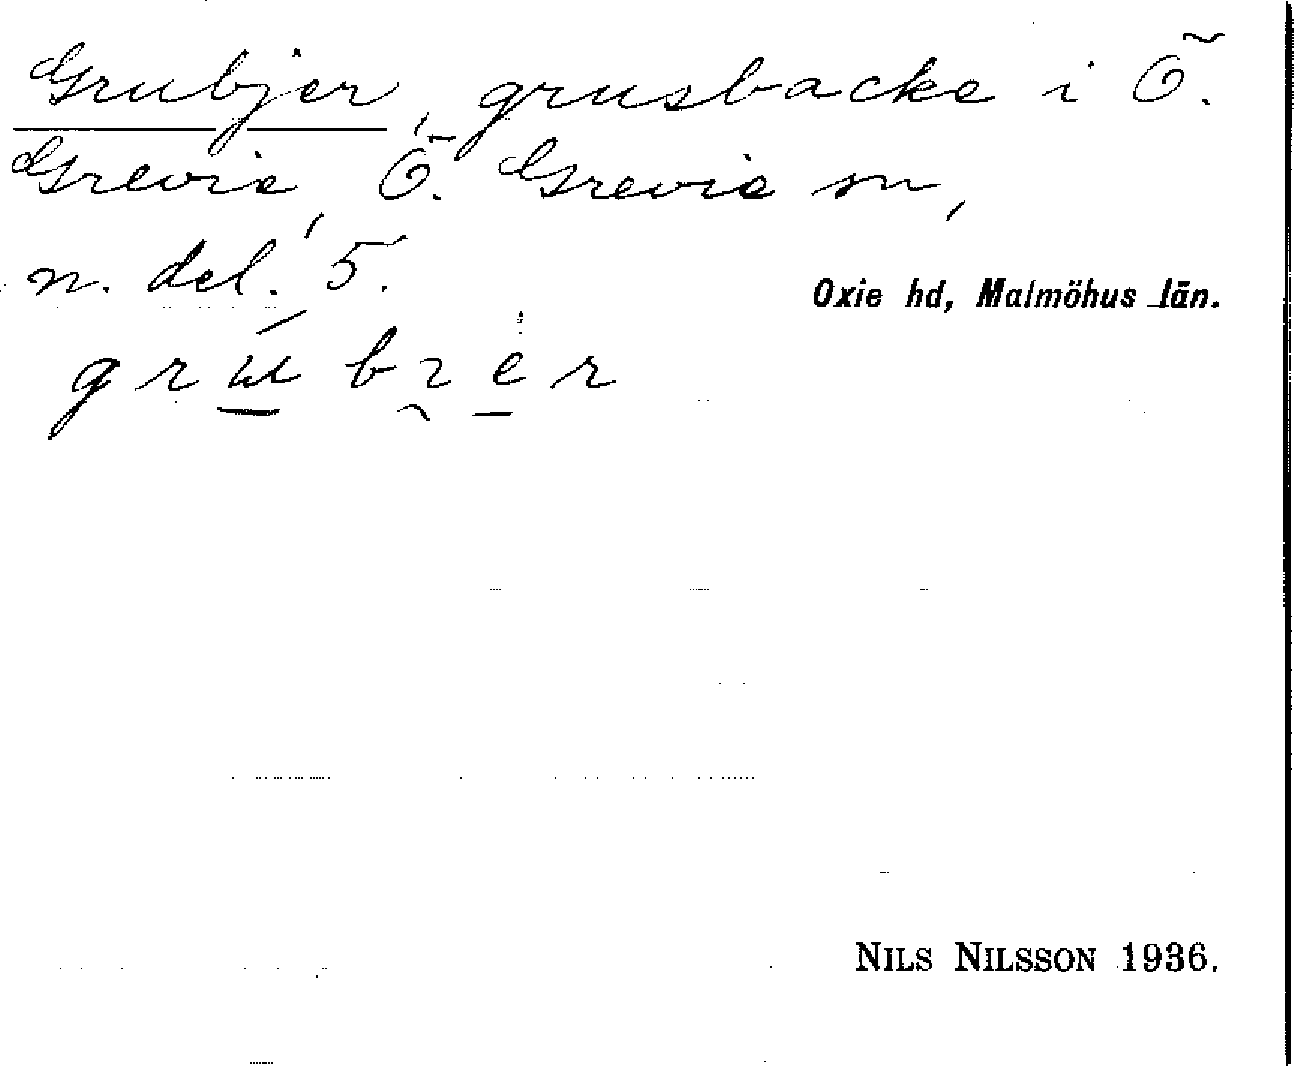 Grubjer, grusbacke i Ö.
Grevie, Ö. Grevie sn,
n. del. 5.
Oxie hd, Malmöhus län.
NILS NILSSON 1936.